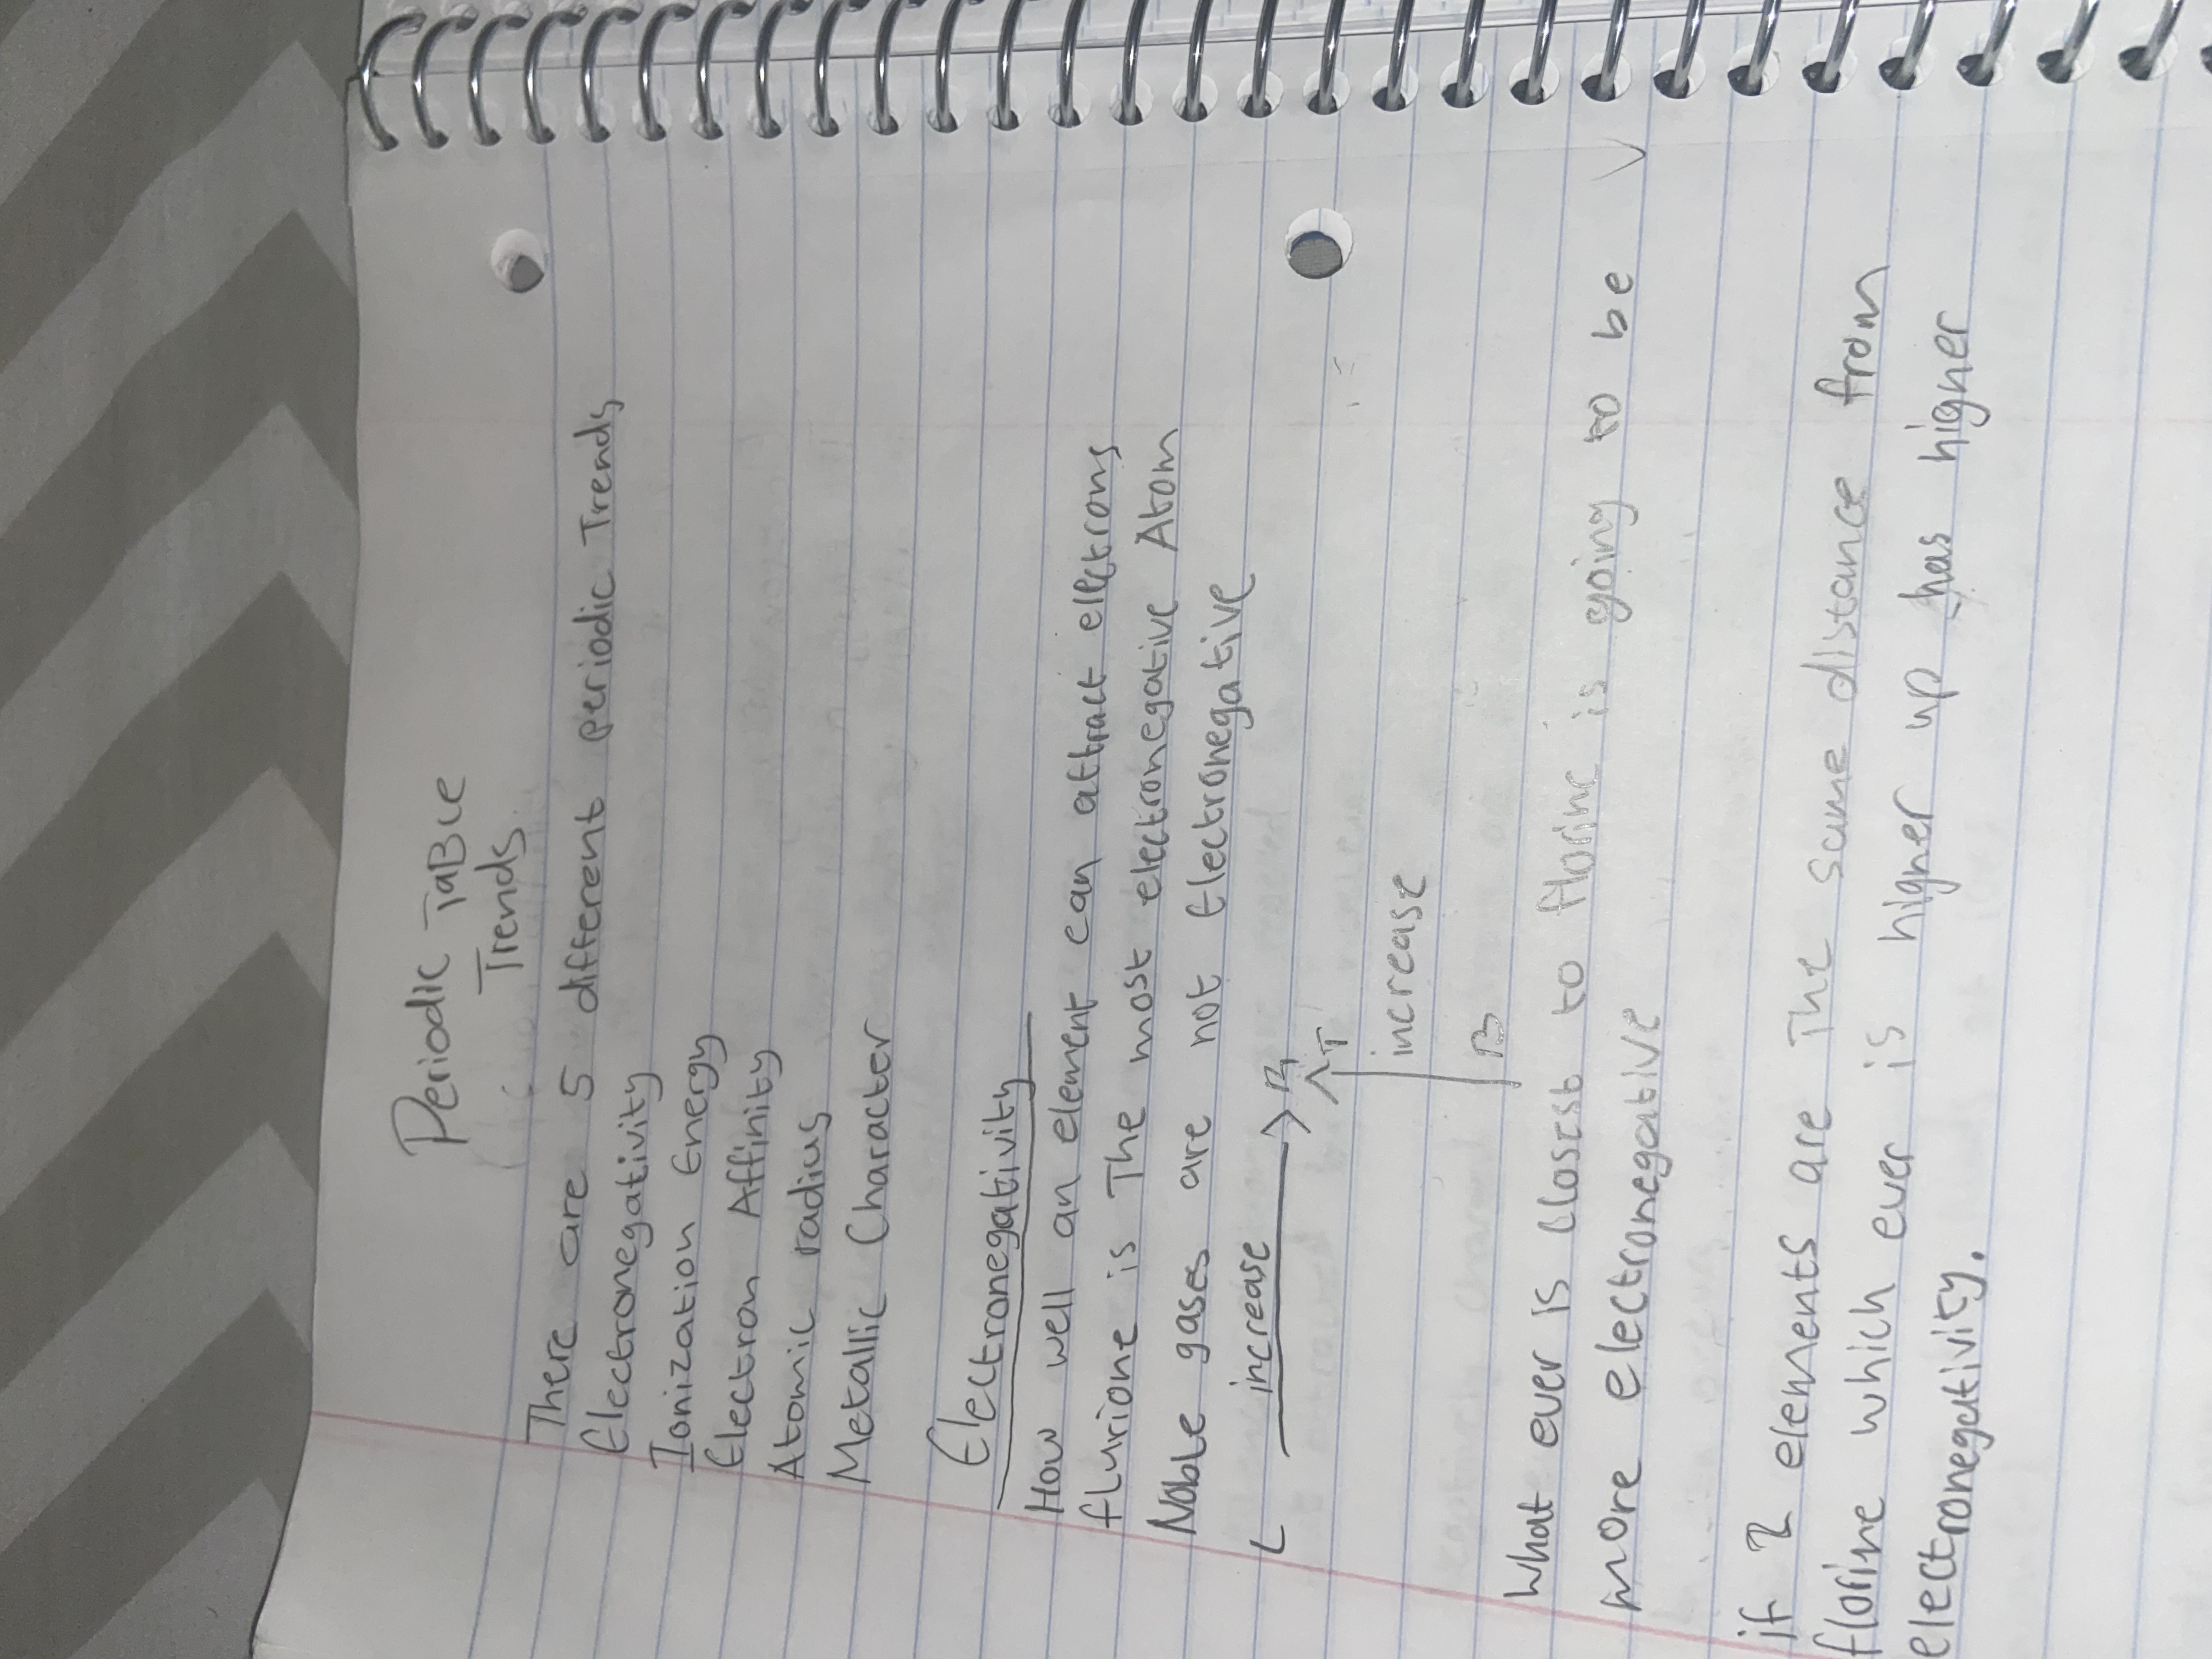 Periodic TaBle
Trends
There are 5 different periodic Trends
Electronegativity
Ionization Energy
Electron Affinity
Atomic radius
Metallic Character
Electronegativity
How well an element can attract electrons
flurione is The most electronegative Atom
Noble gases are not Electronegative
L increase R
T
increase
B
What ever is closest to florine is going to be
more electronegative
if 2 elements are The same distance from
florine which ever is higher up has higher
electronegativity.